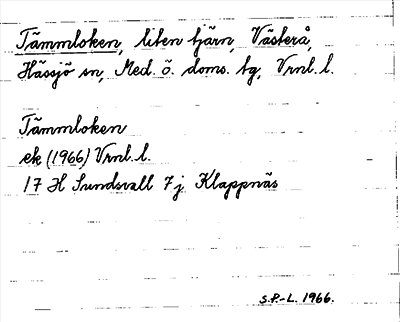 Tämmloken, liten tjärn, Västerå,
Hässjö sn, Med. ö. doms. tg, Vrnl. l.
Tämmloken
ek (1966) Vrnl. l.
17 H Sundsvall 7 j Klappnäs
S.P.-L. 1966.